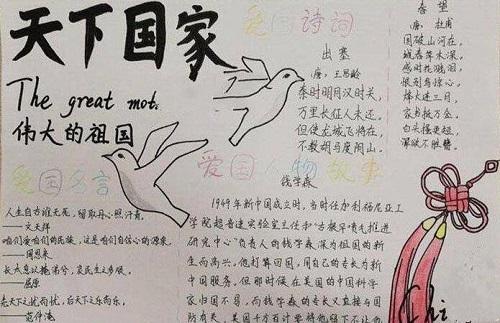 天下国家
The great mot
伟大的祖国
爱国诗词
出塞
唐：王昌龄
秦时明月汉时关，
万里长征人未还。
但使龙城飞将在，
不教胡马度阴山。
春望
唐：杜甫
国破山河在，
城春草木深。
感时花溅泪，
恨别鸟惊心。
烽火连三月，
家书抵万金。
白头搔更短，
浑欲不胜簪。
爱国名言
人生自古谁无死，留取丹心照汗青。
——文天祥
咱们爱咱们的民族，这是咱们自信心的源泉。
——周恩来
长太息以掩涕兮，哀民生之多艰。
——屈原
先天下之忧而忧，后天下之乐而乐。
——范仲淹
爱国人物故事
钱学森
1949年新中国成立时，当时任加利福尼亚工
学院超音速实验室主任和“古根罕喷气推进
研究中心”负责人的钱学森为祖国的新
生而高兴。他打算回国，用自己的专长为新
中国服务。但那时候在美国的中国科学
家归国不易，而钱学森的专长又直接与国
防有关，美国千方百计要将他留下不让他
Chi